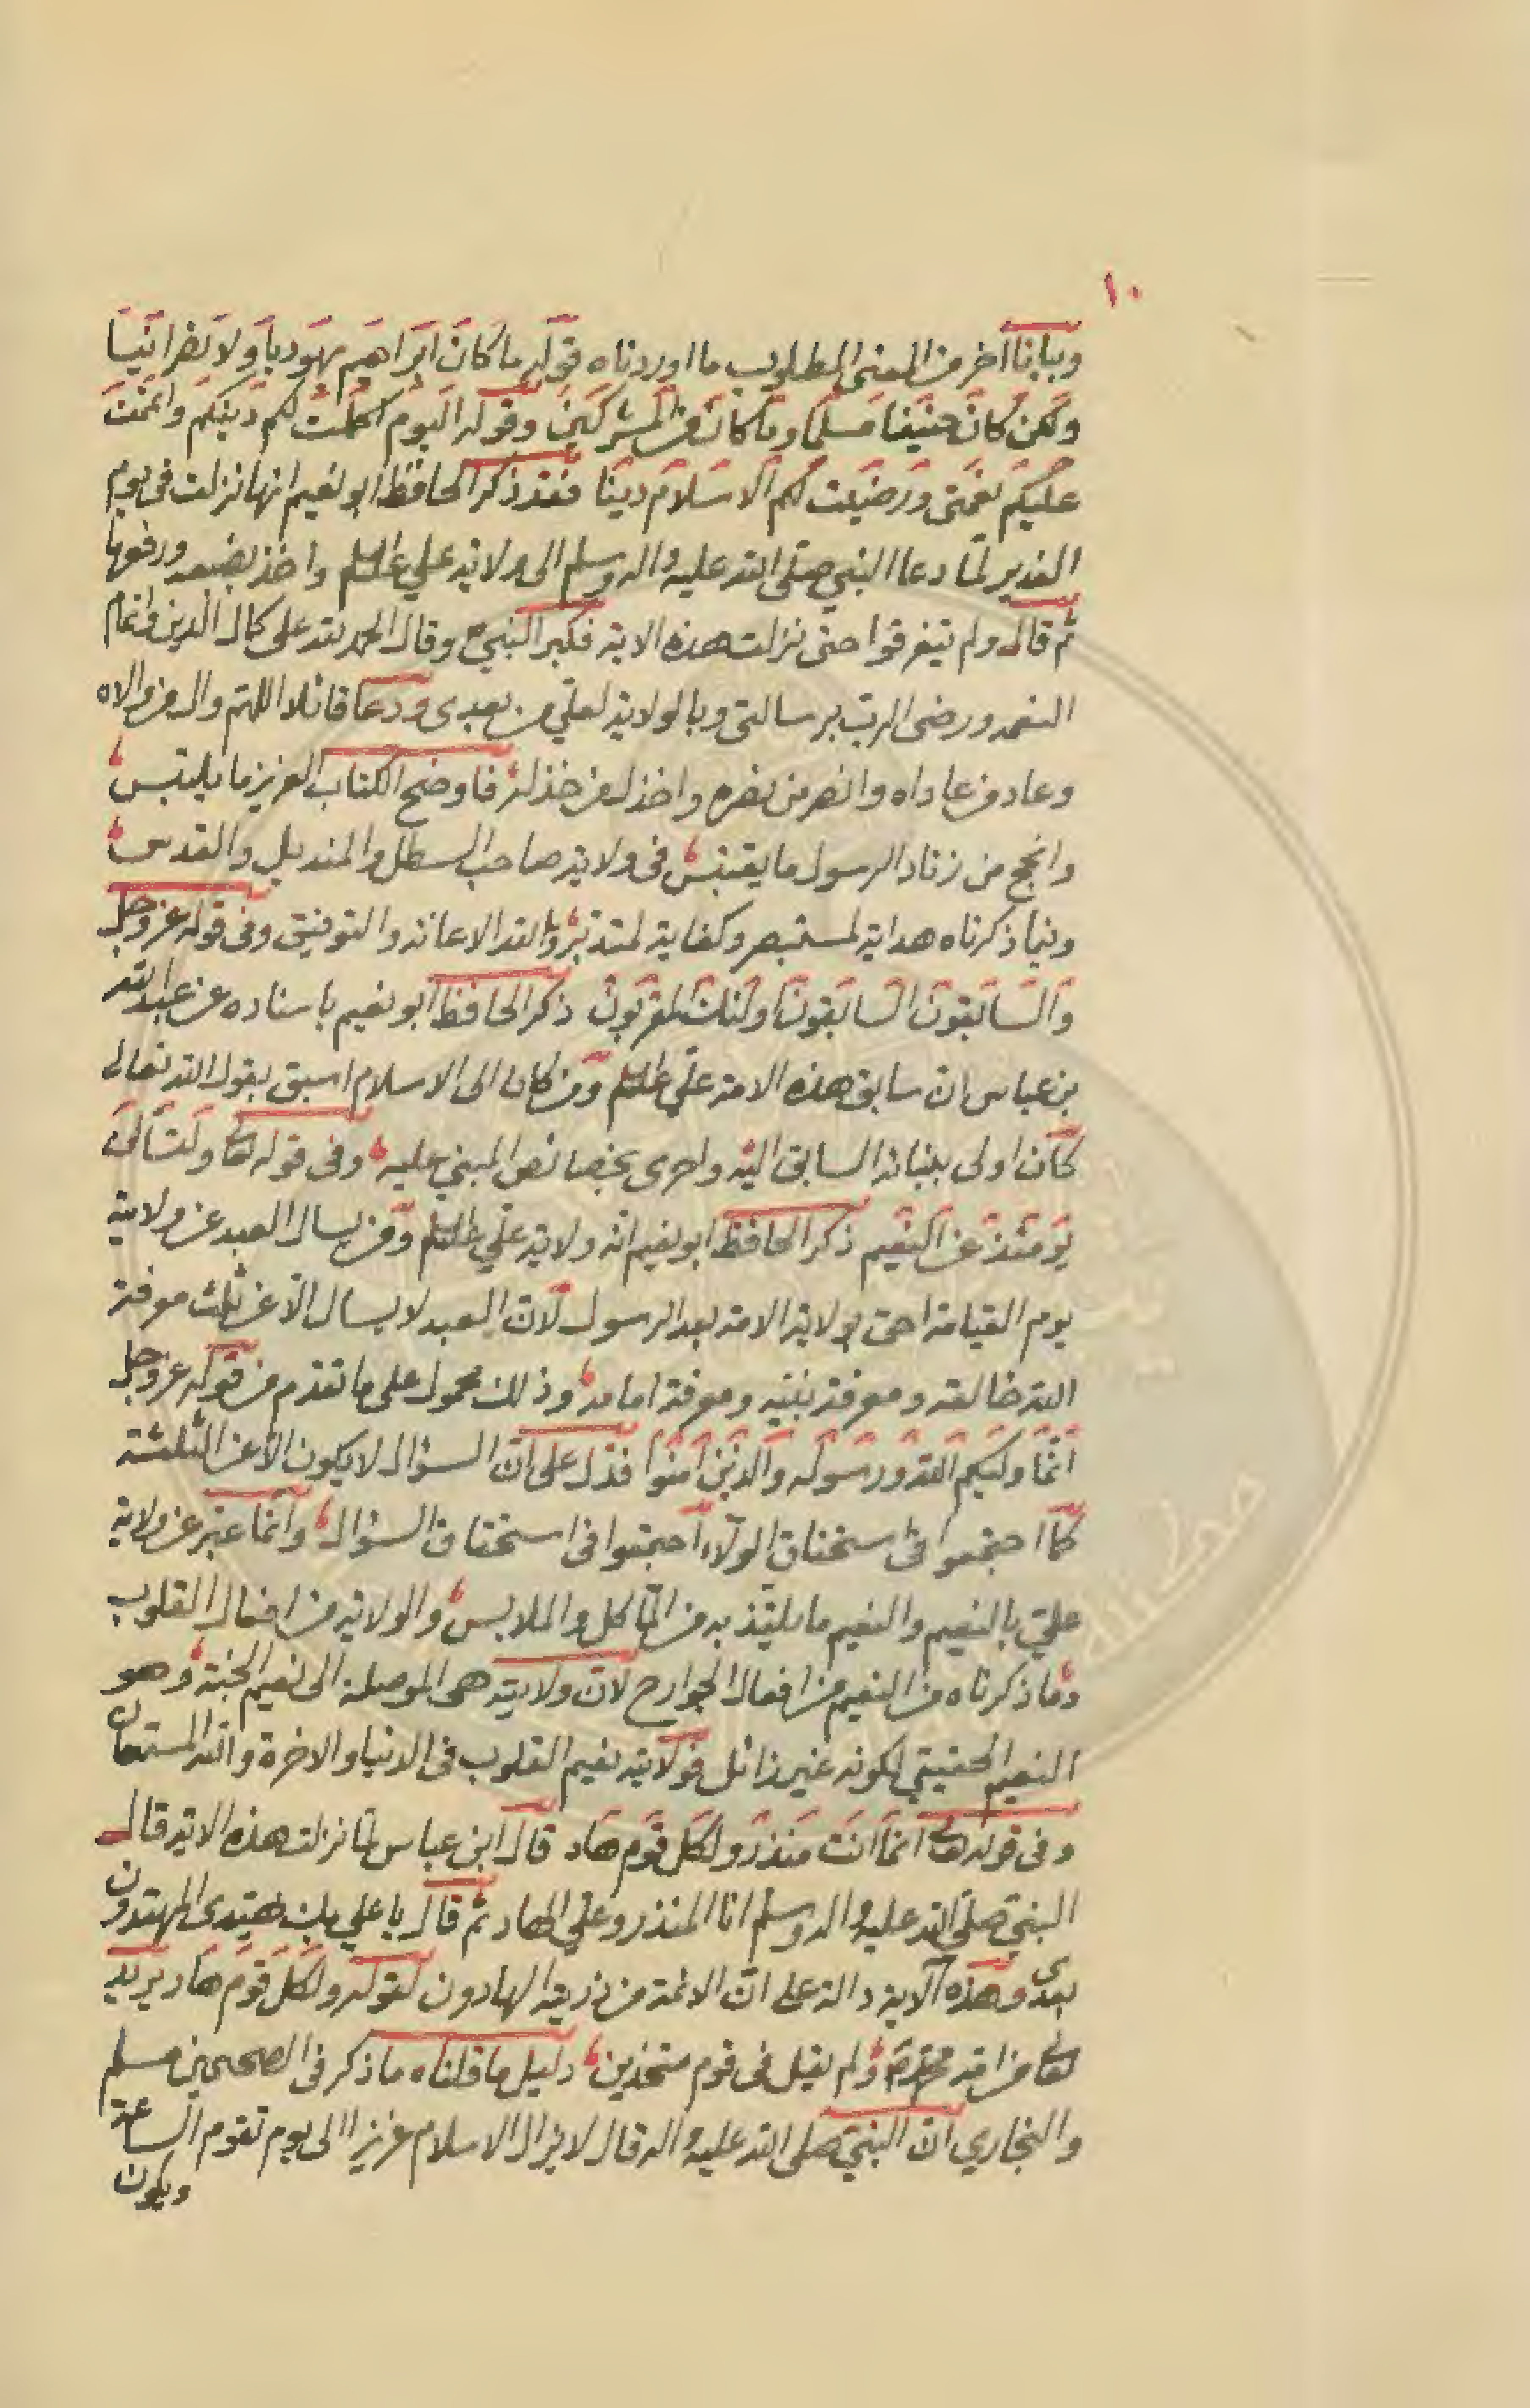 ١٠
وبيانا اخر من المعنى المطلوب ما اوردناه قوله مَا كَانَ ابْرَاهِيم يَهوديا وَلا نَصْرانيّا
ولكن كَانَ حَنيفا مسلمًا وَمَا كانَ من المشركينَ وقوله اليَوم اكملت لكم دينكم واتممت
عليكم نعمتى وَرَضيت لكم الاسلام دينًا فقد ذكر الحافظ ابو نعيم انها نزلت فى يوم
الغدير لما دعا النبي صلى الله عليه واله وسلم الى ولاية علي عليه السلم واخذ بضبعه ورفعها
ثم قال ولم يتفرقوا حتى نزلت هذه الاية فكبر النبي ص وقال الحمد لله على كمال الدين واتمام
النعمه ورضى الرب برسالتى وبالولاية لعلي من بعدى وَدعا قائلا اللهم وال من والاه
وعاد من عاداه وانصر من نصره واخذل من خذله فاوضح الكتاب العزيز ما يلتبس
وانجح من زناد الرسول ما يقتبس فى ولاية صاحب السطل والمنديل والقدس
وفيما ذكرناه هداية لمستبصر وكفاية لمتدبر وبالله الاعانه والتوفيق وفى قوله عز وجل
والسابقونَ السابقونَ اولئك المقربون ذكر الحافظ ابو نعيم باسناده عن عبد الله
بن عباس ان سابق هذه الامة علي عليه السلم ومن كان الى الاسلام اسبق بقول الله تعالى
كان اولى السابق اليه واحرى بخصائص المبني عليه وفى قوله تعالى ولتسألنَ
يومئذ عن النعيم ذكر الحافظ ابو نعيم انه ولاية علي عليه السلم ومن يسال العبد عن ولاية
يوم القيامة احق بولاية الامة بعد الرسول لان العبد لا يسال الا عن ثلث معرفة
الله خالقه ومعرفة نبيه ومعرفة امامه وذلك محمول على ما تقدم من قوله عز وجل
انمَا وليكم الله ورسوله والذينَ امنوا فدل على ان السؤال لا يكون الا عن الثلثة
كما اجتمعوا فى استحقاق الولاء اجتمعوا فى استحقاق السؤال وانما عبر عن ولاية
علي بالنعيم والنعيم ما يلتذ به من المآكل والملابس والولاية من افعال القلوب
وما ذكرناه من النعيم من افعال الجوارح لان ولايته هى الموصلة الى نعيم الجنة وهو
النعيم الحقيقي لكونه غير زائل فولايته نعيم القلوب فى الدنيا والاخرة والله المستعان
وفى قوله تعالى انما انت منذر ولكل قوم هاد قال ابن عباس لما نزلت هذه الاية قال
النبي صلى الله عليه واله وسلم انا المنذر وعلي الهاد ثم قال يا علي بك يهتدى المهتدون
بعدى وهذه الاية دالة على ان الائمة من ذريته الهادون لقوله ولكل قوم هاد يريد
تعالى من امة محمد ص ولم يقل فى قوم متحدين دليل ما قلناه ما ذكر فى الصحيحين مسلم
والبخاري ان النبي صلى الله عليه واله قال لا يزال الاسلام عزيزا الى يوم تقوم الساعة
ويكون